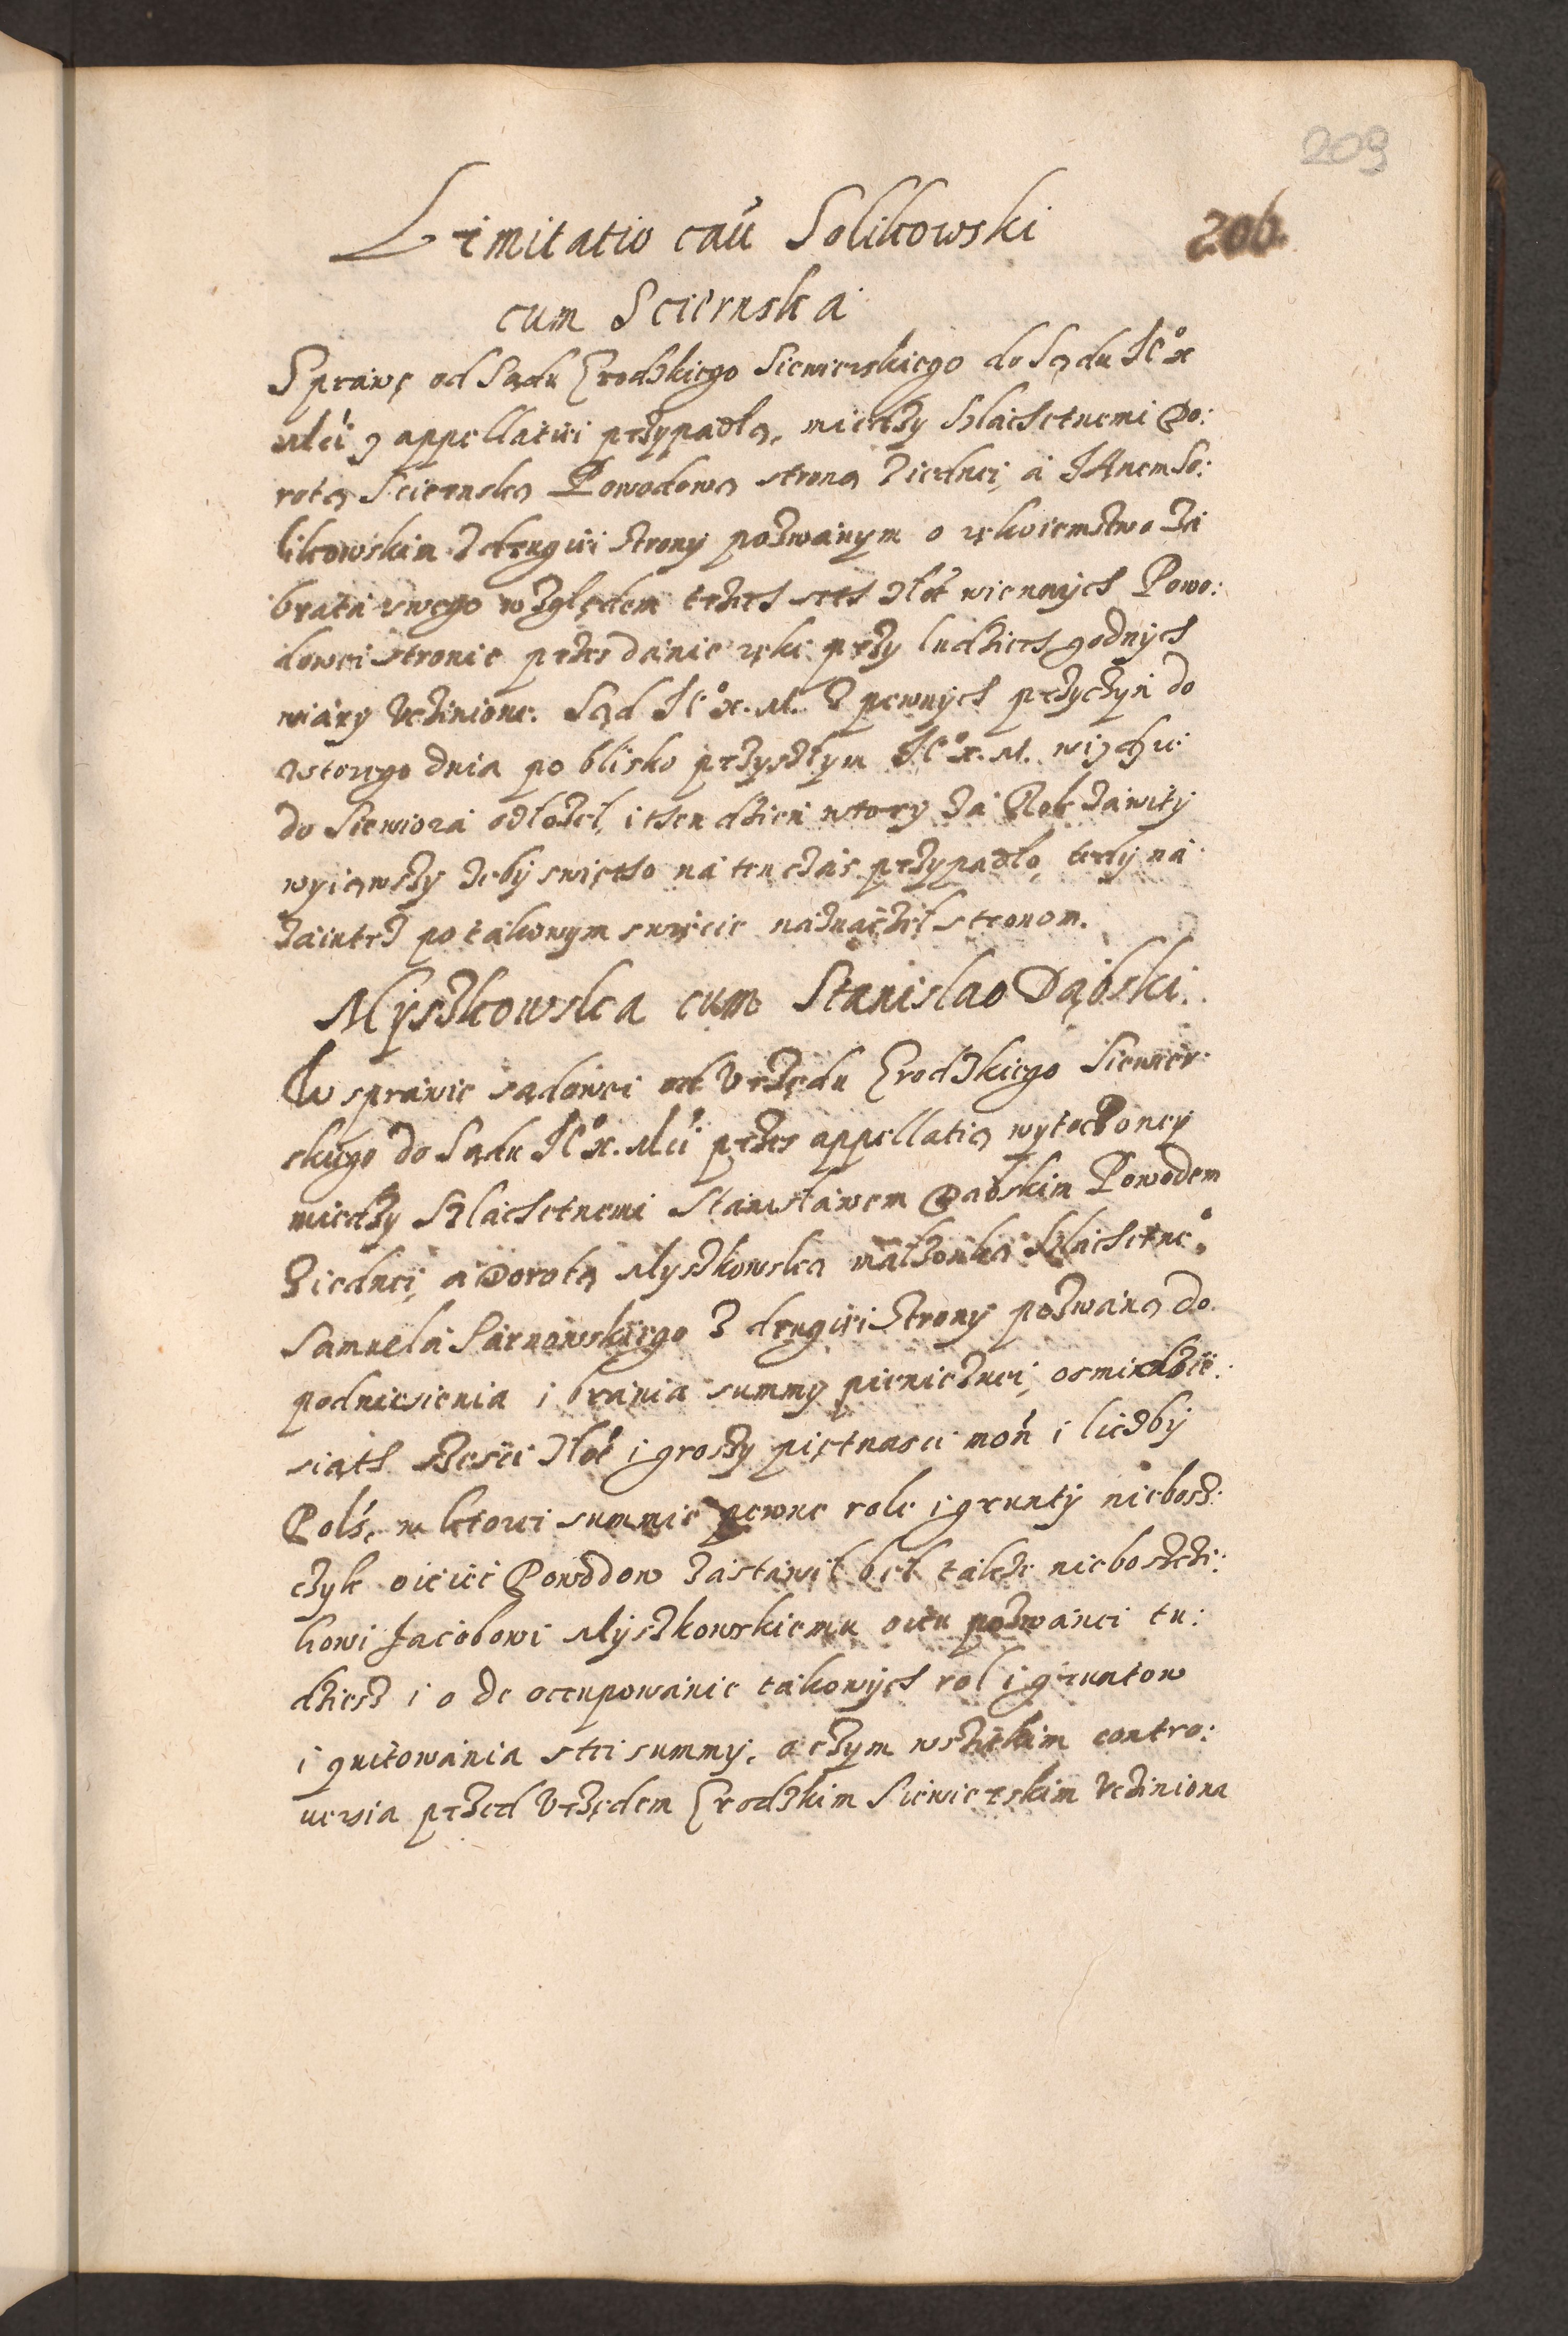 209
206.
Limitatio cau Solikowski
cum Scienska
Sprawę od Sądu Grodzkiego Siewierskiego do Sądu JCº x
Mći z appellatiei przypadłą, miedzy Szlachetnemi Do:
rotą Scienską Powodową stroną z iednei, á JANem So:
likowskim z drugiei strony pozwanym o rękoiemstwo zá
bratá swego względem trzech seth złot wiennych Powo:
dowei stronie przes danie ręki przy ludziech godnych
wiáry uczinione. Sąd JCº x. M. z pewnych przyczyn do
wtorego dnia po blisko przyszłym JCº x. M. wiezdzie
do Siewiora odłożeł, i then dzien wtory zá Rok zawity
wyiąwszy żeby swiętho ná ten czás przypadło, tedy ná
záiutrz po takowym swięcie náznáczeł stronom.
Myszkowska cum Stanislao Dąbski.
W sprawie sądowei od Urzędu Grodzkiego Siewier:
skiego do Sądu JCº x. Mći przes appellatią wytoczoney
miedzy Szlachetnemi Stanisławem Dąbskim Powodem
z iednei, a Dorotą Myszkowską małżonką Szláchetneº
Samuela Sarnowskiego z drugiei strony pozwáną do
podniesienia i bránia summy pieniężnei, osmindzie:
siąth szesci złot i groszy piętnasci mon i liczby
Pols, w ktorei summie pewne role i grunty niebosz:
czyk ociec Powodow zástáwił beł tákże nieboszczi:
kowi Jacobowi Myszkowskiemu oicu pozwánei tu:
dziesz i o de occupowánie tákowych rol i gruntow
i quitowánia s tei summy, o czym wszitkim contro:
uersia przed Urzędem Grodzkim Siewierskim uczinioná